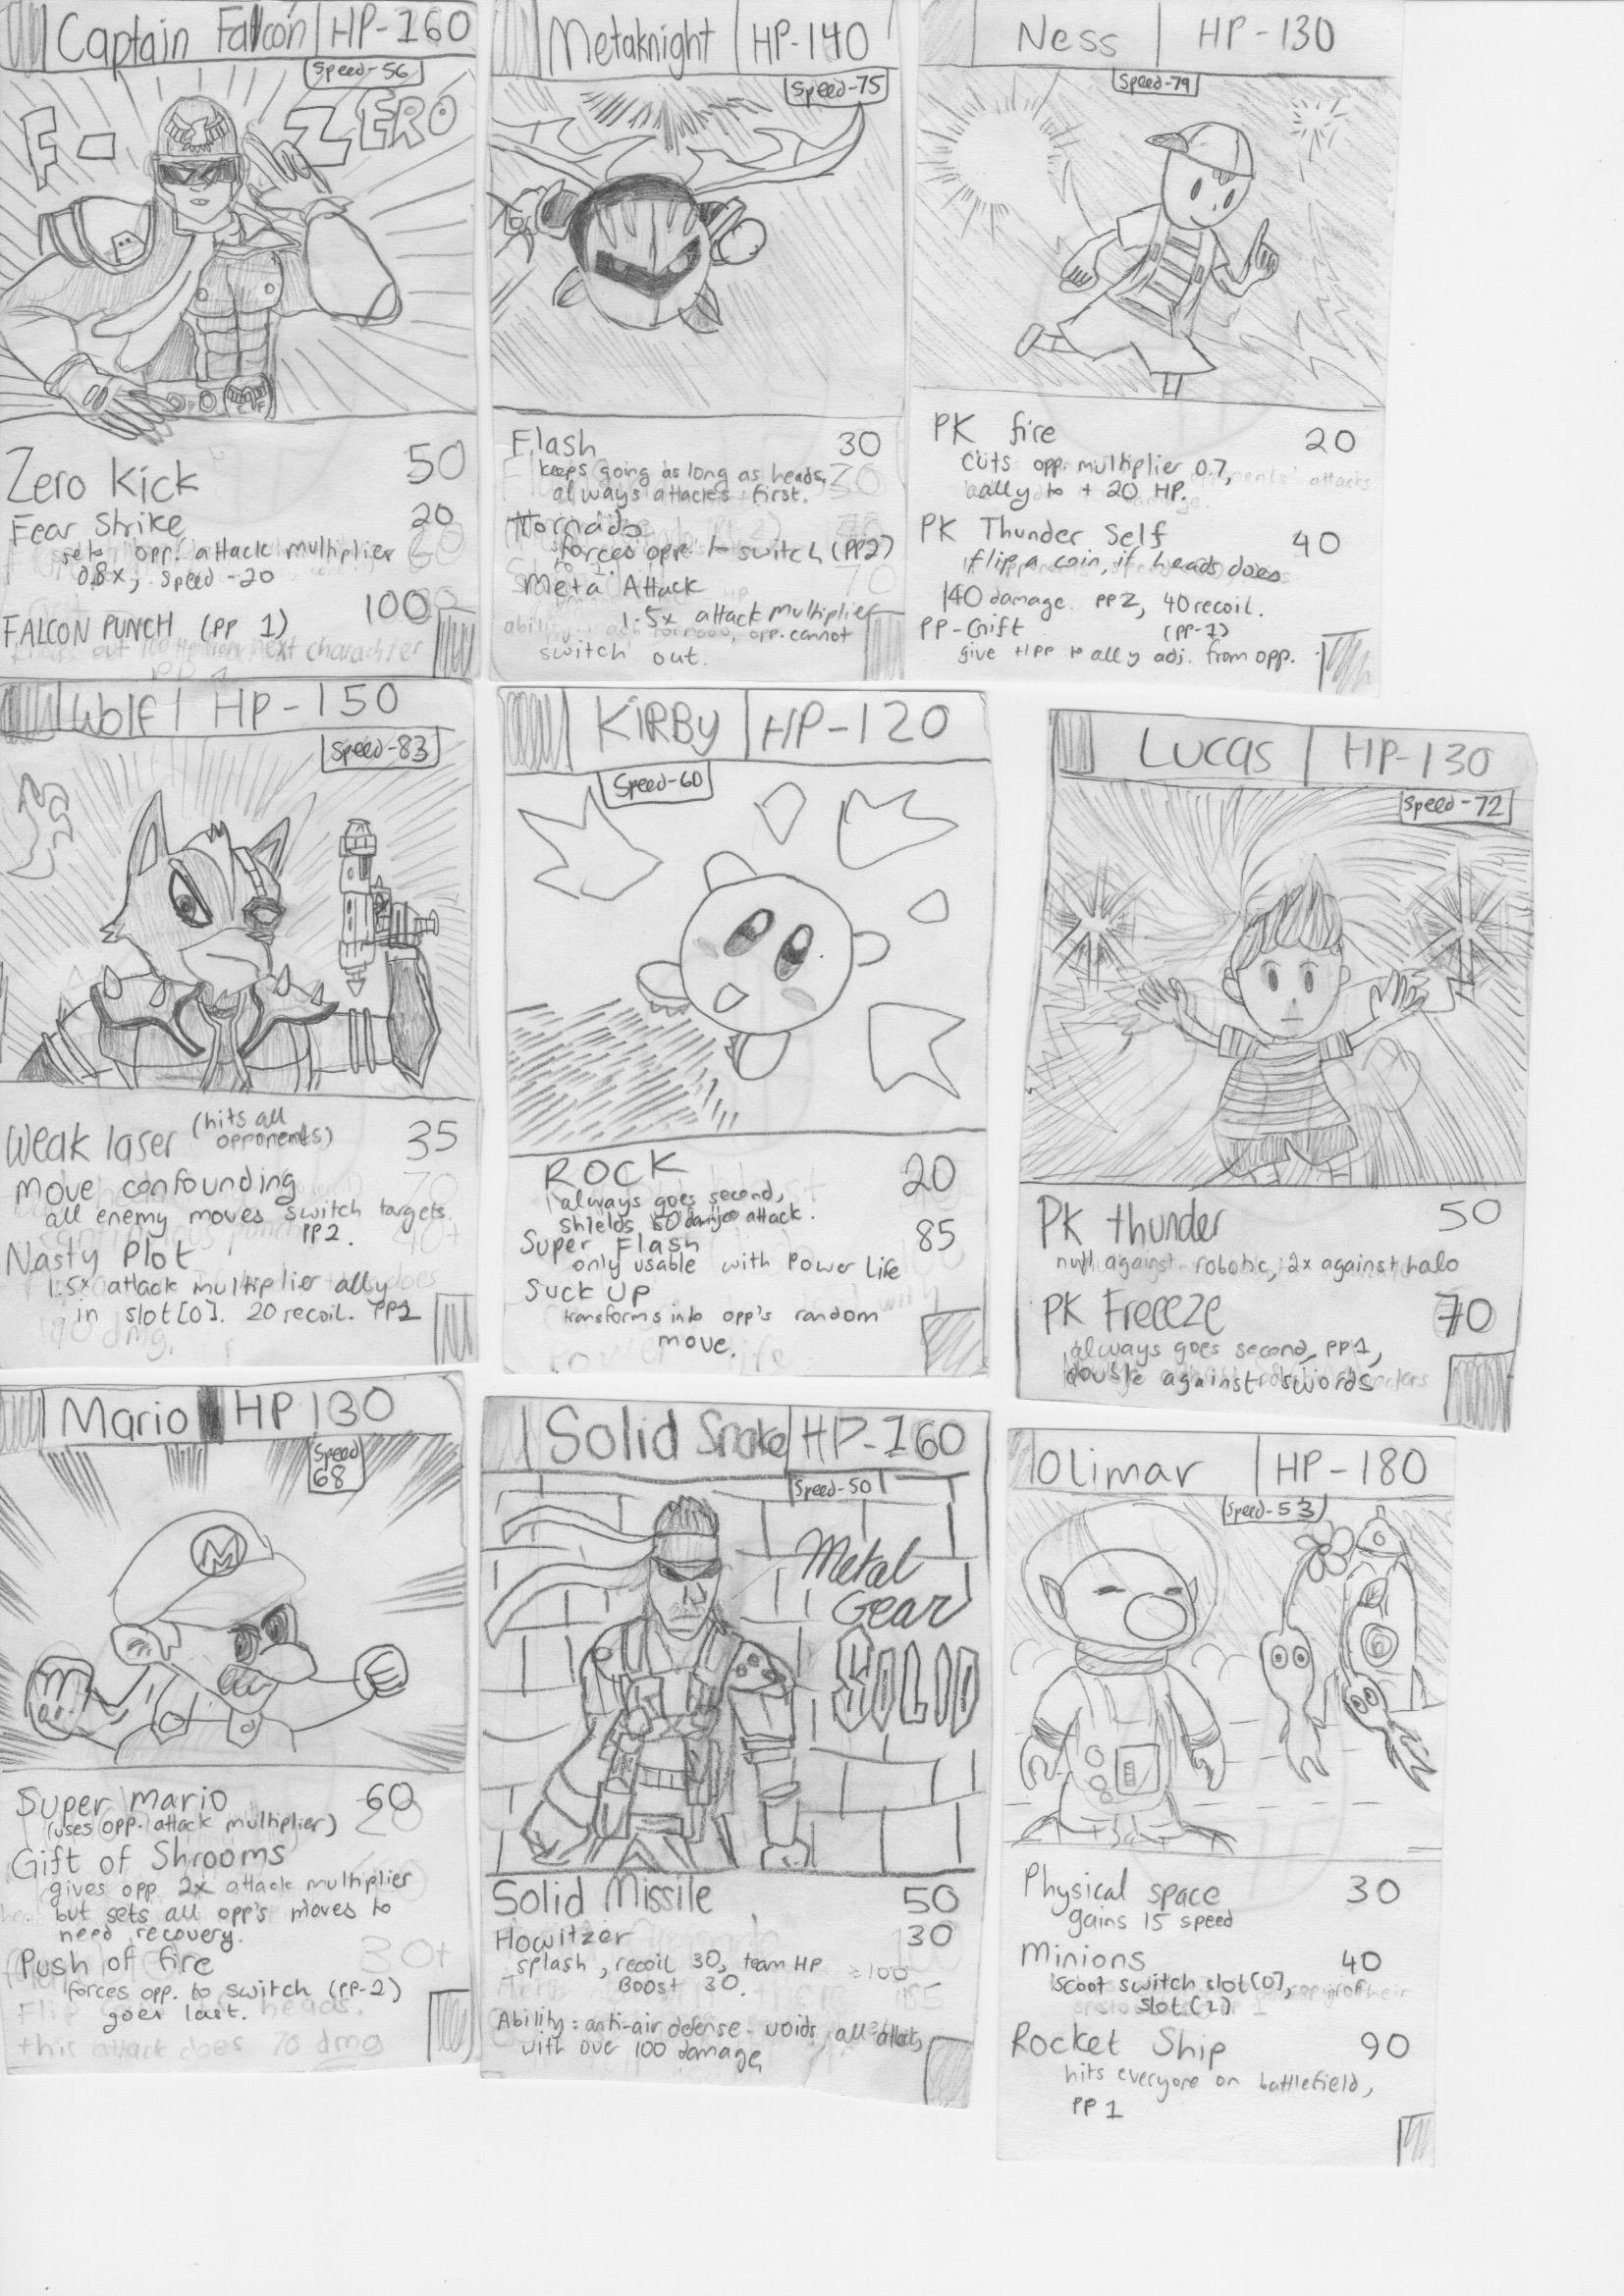 Captain Falcon HP-160
Speed-56
F-ZERO
Zero Kick 50
Fear Strike 20
sets opp. attack multiplier
0.8x, speed -20
FALCON PUNCH (PP 1) 100
Metaknight HP-140
Speed-75
Flash 30
keeps going as long as heads,
always attacks first.
Tornado
forces opp. to switch (PP2)
Meta Attack
1.5x attack multiplier
opp. cannot
switch out.
Ness HP-130
Speed-79
PK fire 20
cuts opp. multiplier 0.7,
ally to + 20 HP.
PK Thunder Self 40
flip a coin, if heads does
140 damage. PP2, 40 recoil.
PP-Gift (PP-1)
give +1 PP to ally adj. from opp.
Wolf HP-150
Speed-83
Weak laser (hits all opponents) 35
Move confounding
all enemy moves switch targets.
PP2.
Nasty Plot
1.5x attack multiplier ally
in slot[0]. 20 recoil. PP1
KIRBY HP-120
Speed-60
ROCK 20
always goes second,
shields 50 damage attack.
Super Flash 85
only usable with Power Life
Suck Up
transforms into opp's random
move.
Lucas HP-130
Speed-72
PK thunder 50
null against robotic, 2x against halo
PK Freeze 70
always goes second, PP1,
double against swords
Mario HP 130
Speed
68
M
Super Mario 60
(uses opp. attack multiplier)
Gift of Shrooms
gives opp. 2x attack multiplier
but sets all opp's moves to
need recovery.
Push of fire
forces opp. to switch (PP-2)
goes last.
this attack does 70 dmg
Solid Snake HP-160
Speed-50
Metal
Gear
SOLID
Solid Missile 50
Howitzer 30
splash, recoil 30, team HP
Boost 30.
Ability: anti-air defense - voids all attacks
with over 100 damage
Olimar HP-180
Speed-53
Physical space 30
gains 15 speed
Minions 40
scoot switch slot[0],
slot[2]
Rocket Ship 90
hits everyone on battlefield,
PP 1